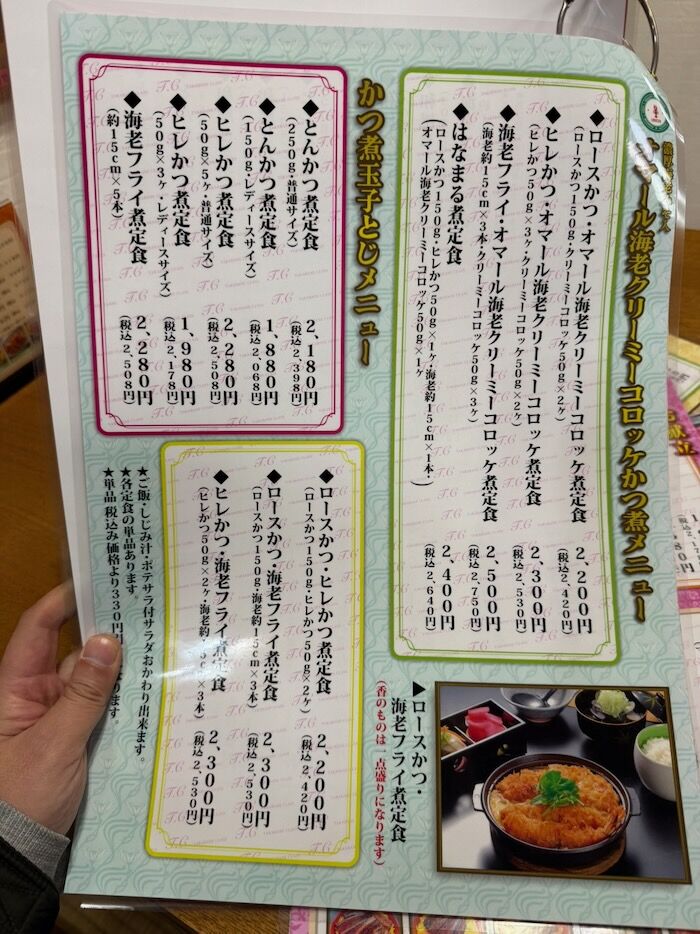 オマール海老クリーミーコロッケかつ煮メニュー
◆ロースかつ・オマール海老クリーミーコロッケ煮定食
(ロースかつ150g・クリーミーコロッケ50g×2ヶ)
2,200円
(税込2,420円)
◆ヒレかつ・オマール海老クリーミーコロッケ煮定食
(ヒレかつ50g×3ヶ・クリーミーコロッケ50g×2ヶ)
2,300円
(税込2,530円)
◆海老フライ・オマール海老クリーミーコロッケ煮定食
(海老約15cm×3本・クリーミーコロッケ50g×3ヶ)
2,500円
(税込2,750円)
◆はなまる煮定食
(ロースかつ150g・ヒレかつ50g×1ヶ・海老約15cm×1本・
オマール海老クリーミーコロッケ50g×1ヶ)
2,400円
(税込2,640円)
かつ煮玉子とじメニュー
◆とんかつ煮定食
(250g・普通サイズ)
2,180円
(税込2,398円)
◆とんかつ煮定食
(150g・レディースサイズ)
1,880円
(税込2,068円)
◆ヒレかつ煮定食
(50g×5ヶ・普通サイズ)
2,280円
(税込2,508円)
◆ヒレかつ煮定食
(50g×3ヶ・レディースサイズ)
1,980円
(税込2,178円)
◆海老フライ煮定食
(約15cm×5本)
2,280円
(税込2,508円)
◆ロースかつ・ヒレかつ煮定食
(ロースかつ150g・ヒレかつ50g×2ヶ)
2,200円
(税込2,420円)
◆ロースかつ・海老フライ煮定食
(ロースかつ150g・海老約15cm×3本)
2,300円
(税込2,530円)
◆ヒレかつ・海老フライ煮定食
(ヒレかつ50g×2ヶ・海老約15cm×3本)
2,300円
(税込2,530円)
★ご飯・しじみ汁・ポテサラ付サラダおかわり出来ます。
★各定食の単品あります。
★単品税込み価格より330円引 ります。
▶ロースかつ・
海老フライ煮定食
(香のものは一点盛りになります)